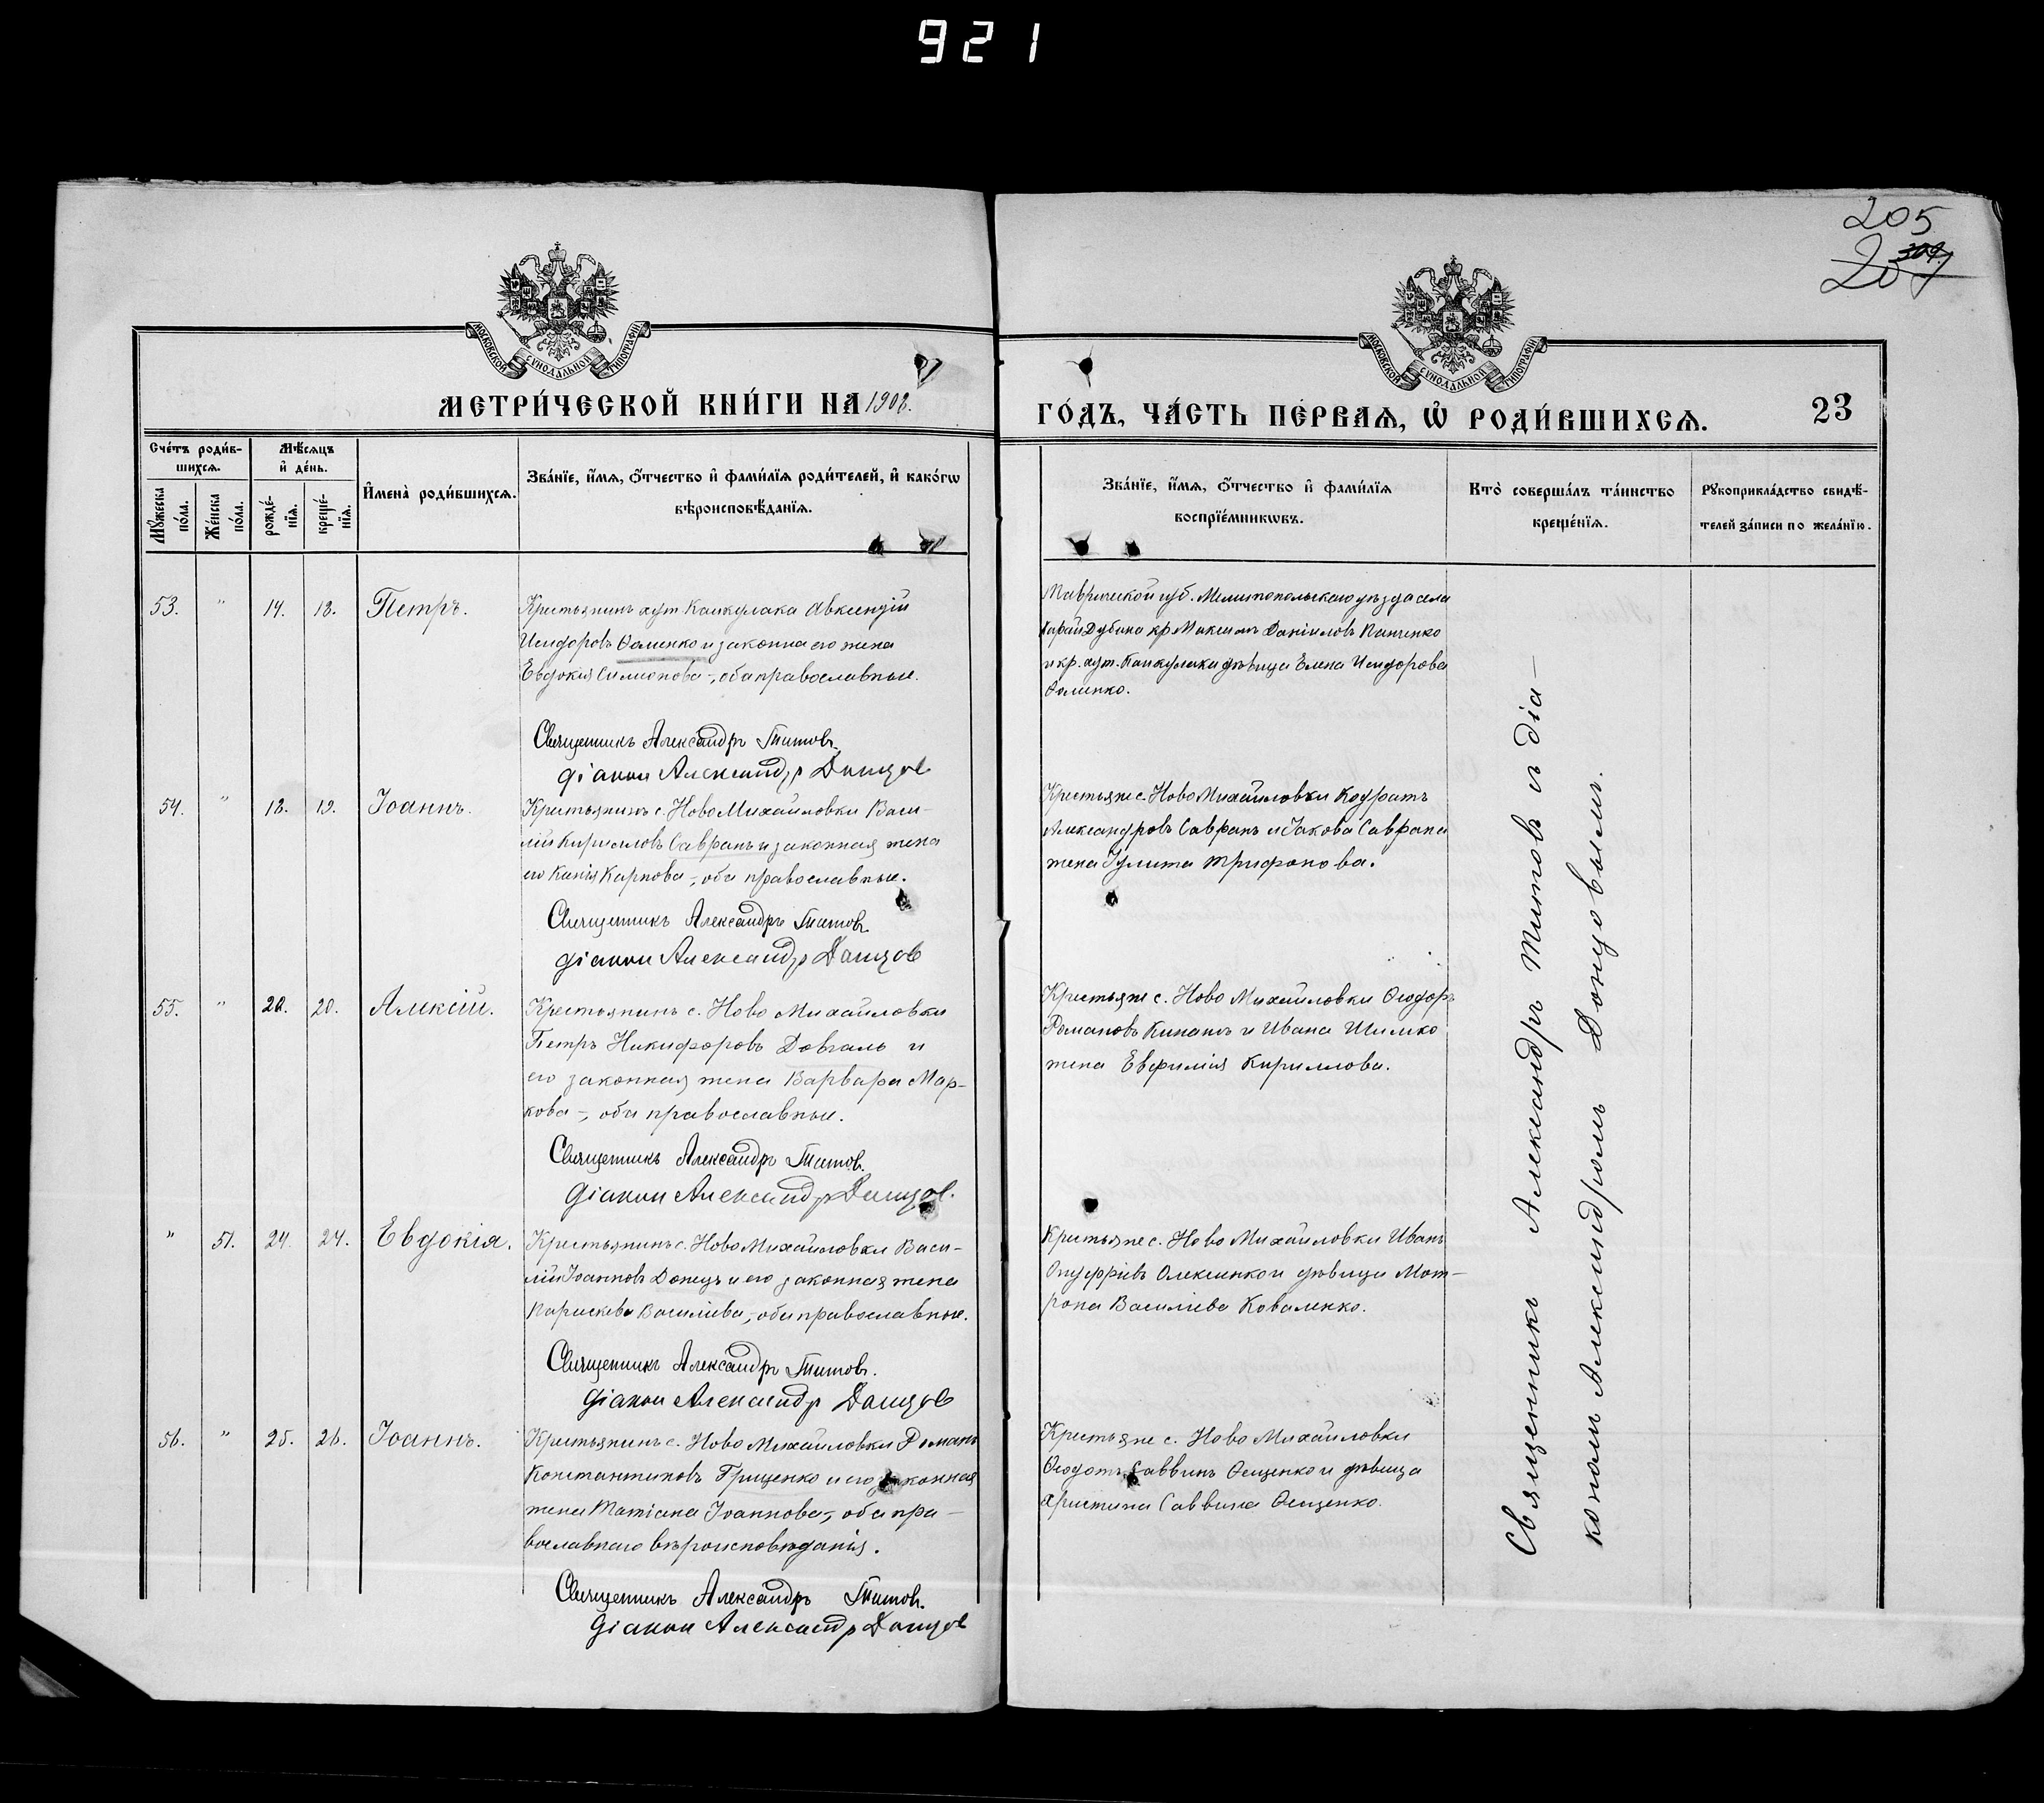 921
205
207
309.
МОСКОВСКОЙ СѴНОДАЛЬНОЙ ТИПОГРАФІИ
МОСКОВСКОЙ СѴНОДАЛЬНОЙ ТИПОГРАФІИ
МЕТРИ́ЧЕСКОЙ КНИ́ГИ НА 1908.
ГО́ДЪ, ЧА́СТЬ ПЕ́РВАѦ, Ѽ РОДИ́ВШИХСѦ.
23
Сче́тъ роди́в-
шихсѧ.
Мѣ́сѧцъ
и҆ де́нь.
Мꙋ́жеска
по́ла.
Же́нска
по́ла.
рожде́-
нїѧ.
креще́-
нїѧ.
И҆мена̀ роди́вшихсѧ.
Зва́нїе, и҆́мѧ, ѻ҆́тчество и҆ фами́лїѧ роди́телей, и҆ како́гѡ
вѣроисповѣ́данїѧ.
Зва́нїе, и҆́мѧ, ѻ҆́тчество и҆ фами́лїѧ
воспрїе́мникѡвъ.
Кто̀ соверша́лъ та́инство
креще́нїѧ.
Рꙋкоприкла́дство свидѣ́-
телей за́писи по жела́нїю.
53. " 14. 18. Петръ.
Крестьянинъ хут. Канкулака Авксендій
Исидоровъ Ѳоменко и законная его жена
Евдокія Симонова -, оба православные.
Священникъ Александръ Титовъ.
діакон Александр Донцов
Таврической губ. Мелитопольскаго уѣзда села
Карай Дубина кр. Максимъ Даніиловъ Панченко
и кр. хут. Канкулака дѣвица Елена Исидорова
Ѳоменко.
54. " 18. 19. Іоаннъ.
Крестьянинъ с. Ново Михайловки Васи-
лій Кирилловъ Савранъ и законная жена
его Ксенія Карпова -, оба православные.
Священникъ Александръ Титовъ.
діакон Александр Донцов
Крестьяне с. Ново Михайловки Кодратъ
Александровъ Савранъ и Іакова Саврана
жена Іулита Трифонова.
55. " 20. 20. Алексій.
Крестьянинъ с. Ново Михайловки
Петръ Никифоровъ Довгаль и
его законная жена Варвара Мар-
кова -, оба православные.
Священникъ Александръ Титов.
діакон Александр Донцов.
Крестьяне с. Ново Михайловки Ѳеодоръ
Романовъ и Ивана Шимко
жена Евфимія Кириллова.
" 51. 24. 24. Евдокія.
Крестьянинъ с. Ново Михайловки Васи-
лій Іоанновъ Донецъ и его законная жена
Параскева Василіева -, оба православные.
Священникъ Александръ Титовъ.
діакон Александр Донцов
Крестьяне с. Ново Михайловки Иванъ
Онуфріевъ Олексенко и дѣвица Мат-
рона Василіева Коваленко.
56. " 25. 26. Іоаннъ.
Крестьянинъ с. Ново Михайловки Романъ
Константиновъ Гриценко и его законная
жена Татіана Іоаннова -, оба пра-
вославнаго вѣроисповѣданія.
Священникъ Александръ Титов.
діакон Александр Донцов
Крестьяне с. Ново Михайловки
Ѳеодотъ Саввинъ Ѳещенко и дѣвица
Христина Саввина Ѳещенко.
Священникъ Александръ Титовъ съ діа-
кономъ Александромъ Донцовымъ.